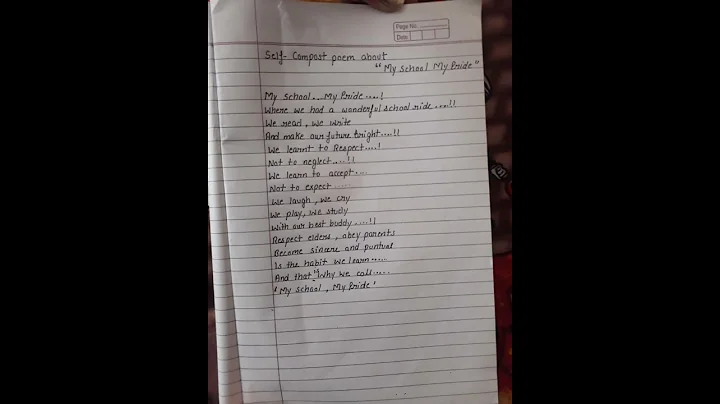 Page No.
Date
Self- Compost poem about
"My School My Pride"
My School...My Pride.....!
Where we had a wonderful school ride....!!
We read, we write
And make our future bright....!!
We learnt to Respect....!
Not to neglect....!!
We learn to accept....
Not to expect.....
We laugh, we cry
We play, we study
With our best buddy.....!!
Respect elders, obey parents
Become sincere and puntual
Is the habit we learn.....
And that's Why we call.....
"My School, My Pride"